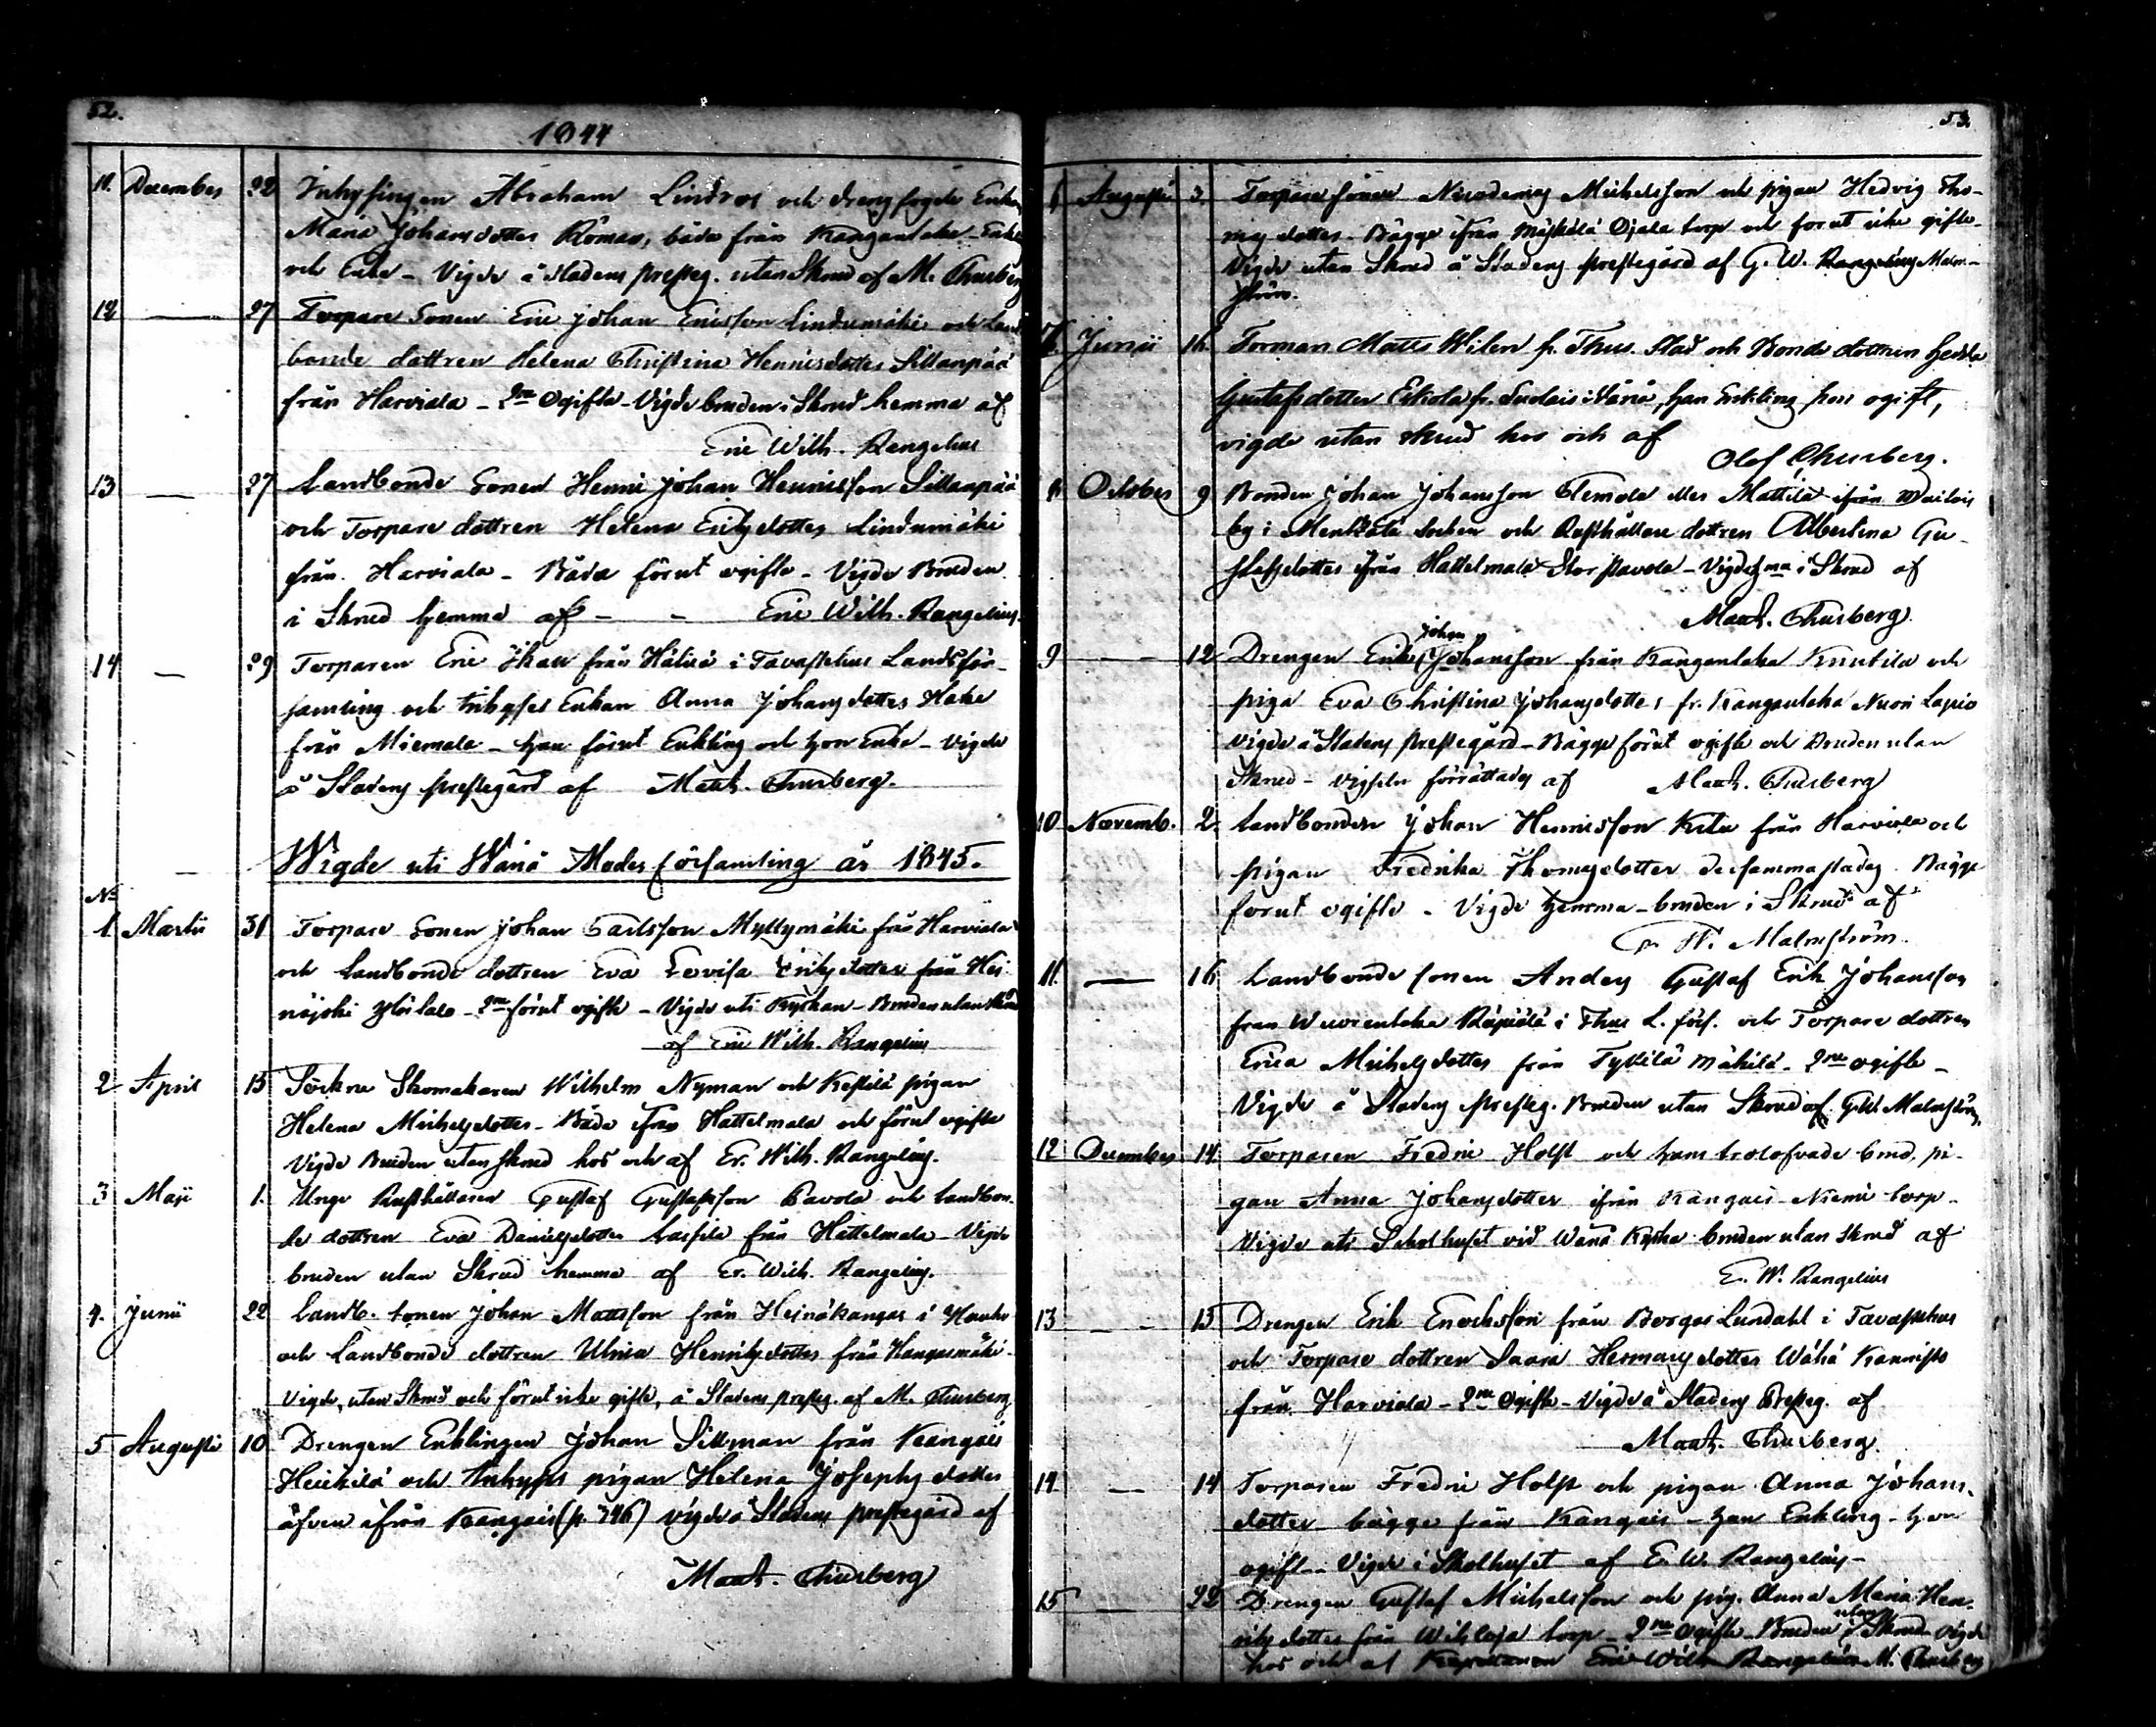 52.
1844
11. December 22 Inhysingen Abraham Lindros och drengfogde Enkan
Maria Johansdotter Roman, båda från Kangantaka - Enkl.
och Enka - Vigde å stadens presteg. utan Skrud af M. Thusberg
12 — 27 Torpare Sonen Eric Johan Ericsson Lindumäki och Land
bonde dottren Helena Christina Henricsdotter Sillanpää
från Harviala - 2ne Ogifta - Vigde bruden i Skrud hemma af
Eric Wilh. Rangelius
13 — 27 Landbonde Sonen Henric Johan Henricsson Sillanpää
och Torpare dottren Helena Eriksdotter Lindumäki
från Harviala - Båda förut ogifta - Vigde Bruden
i Skrud hjemma af - - Eric Wilh. Rangelius.
14 — 29 Torparen Eric Johan från Hätilä i Tavastehus Landsför-
samling och Enkan Anna Johansdotter Hake
från Miemala - han förut Enkling och hon Enka - Vigde
å Stadens prestegård af Math. Thusberg.
Wigde uti Wånå Moder församling år 1845.
No
1. Martii 31 Torpare Sonen Johan Carlsson Myllymäki från Harviala
och Landbonde dottren Eva Lovisa Eriksdotter från Hei
näjoki - 2ne förut ogifte - Vigde uti Kyrkan - Bruden utan Skrud
af Eric Wilh. Rangelius
2 April 15 Sockne Skomakaren Wilhelm Nyman och Kestilä pigan
Helena Michelsdotter - Båda ifrån Hattelmala och förut ogifta
Vigde Bruden utan skrud hos och af Er. Wilh. Rangelius.
3 Maji 1. Unge Rusthållaren Gustaf Gustafsson Pavola och Landbon-
de dottren Eva Danielsdotter Lassila från Hattelmala - Vigde
bruden utan Skrud hemma af Er. Wilh. Rangelius.
4. Junii 22 Landb. sonen Johan Mattsson från Heinäkangas i Hauho
och Landbonde dottren Ulrica Henriksdotter från Kangasmäki -
Vigde, utan Skrud och förut icke gifte, å Stadens presteg. af M. Thusberg
5 Augusti 10 Drengen Enklingen Johan Sillman från Kangais
Heickilä och Inhyses pigan Helena Josephsdotter
äfven ifrån Kangais (p. 746) vigde å Stadens prestegård af
Math. Thusberg
53.
6 Augusti 3. Torparesonen Nicodemus Michelsson och pigan Hedvig Tho-
masdotter - Bägge ifrån Mäskälä Ojala torp och förut icke gifte -
Vigde utan Skrud å Stadens prestegård af G. W. Rangelius Malm-
ström.
7. Junii 16. Forman Matts Wilen fr. Thus. Stad och Bonde dottren Hedda
Gustafsdotter Eskola fr. i Vånå, han Enkling hon ogift,
vigde utan skrud hos och af
Olof Thusberg.
8 October 9 Bonden Johan Johansson Temola eller Mattila ifrån
by i socken och Rusthållare dottren Albertina Gu-
stafsdotter ifrån Hattelmala Storpavola - Vigde hma i Skrud af
Math. Thusberg.
9 — 12 Drengen Erik Johan Johansson från Kangantaka Knutila och
piga Eva Christina Johansdotter fr. Kangantaka Nuori Lapio
Vigde å Stadens prestegård - Bägge förut ogifte och Bruden utan
Skrud - vigseln förrättades af Math. Thusberg
10 Novemb. 2. Landbonden Johan Henricsson Keta från Harviala och
pigan Fredrika Thomasdotter dersammastädes Bägge
förut ogifte - Vigde hjemma - bruden i Skrud af
G. W. Malmström.
11. — 16 Landbonde sonen Anders Gustaf Erik Johansson
från Wuorentaka i Thus L. förs. och Torpare dottren
Erica Michelsdotter från Tykilä Mäkilä - 2ne ogifte -
Vigde å Stadens presteg. Bruden utan Skrud af G. W. Malmström.
12 December 14. Torparen Fredric Holst och hans trolofvade brud, pi-
gan Anna Johansdotter ifrån Kangais Niemi torp -
Vigde uti Scholhuset vid Wånå Kyrka bruden utan Skrud af
E. W. Rangelius
13 — 13 Drengen Erik Enochsson från Borgas Lundahl i Tavastehus
och Torpare dottren Saara Hermansdotter Wähä Kannisto
från Harviala - 2ne Ogifte - Vigde å Stadens Presteg. af
Math. Thusberg.
14 — 14 Torparen Fredric Holst och pigan Anna Johans-
dotter bägge från Kangais - han Enkling - hon
ogift - Vigde i Skolhuset af E. W. Rangelius -
15 — 22 Drengen Gustaf Michelsson och pig. Anna Maria Hen-
riksdotter från torp - 2ne Ogifte - Bruden utan i Skrud vigde
hos och af Kapellanen Eric Wilh Rangelius M. Thusberg